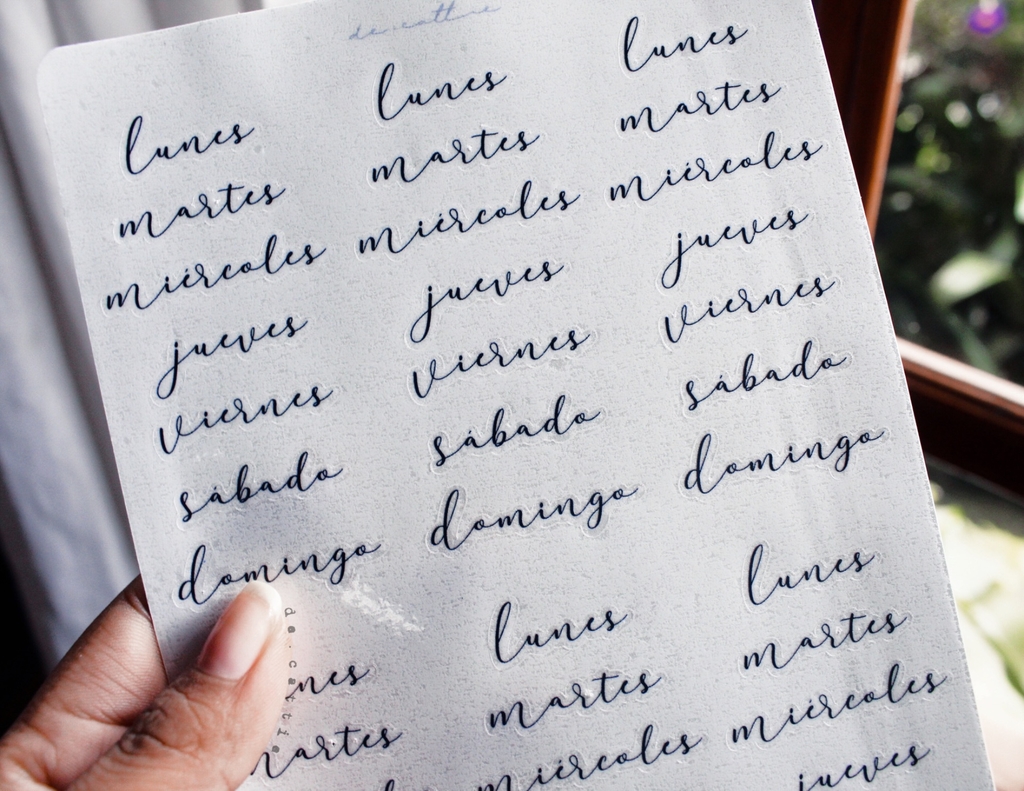 lunes
martes
miércoles
jueves
viernes
sábado
domingo
lunes
martes
miércoles
jueves
viernes
sábado
domingo
lunes
martes
miércoles
jueves
viernes
sábado
domingo
martes
lunes
martes
miércoles
lunes
martes
miércoles
jueves